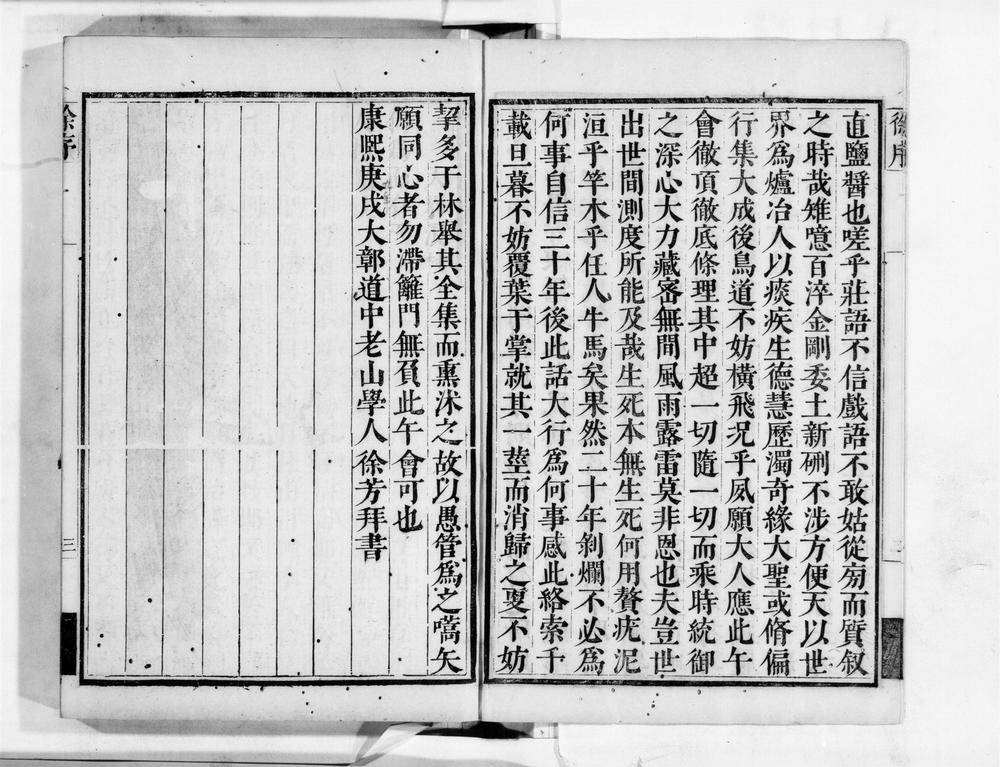 徐序
直鹽醬也嗟乎莊語不信戲語不敢姑從旁而質叙
之時哉雉噫百淬金剛委土新硎不涉方便天以世
界為爐冶人以痰疾生德慧歷濁奇緣大聖或脩偏
行集大成後鳥道不妨橫飛况乎夙願大人應此午
會徹頂徹底條理其中超一切隨一切而乘時統御
之深心大力藏密無間風雨露雷莫非恩也夫豈世
出世間測度所能及哉生死本無生死何用贅疣泥
洹乎竿木乎任人牛馬矣果然二十年剝爛不必為
何事自信三十年後此話大行為何事感此絡索千
載旦暮不妨覆葉于掌就其一莖而消歸之更不妨
挈多于林舉其全集而熏沐之故以愚管為之嚆矢
願同心者勿滯籬門無負此午會可也
康熙庚戌大鄣道中老山學人徐芳拜書
徐序
三